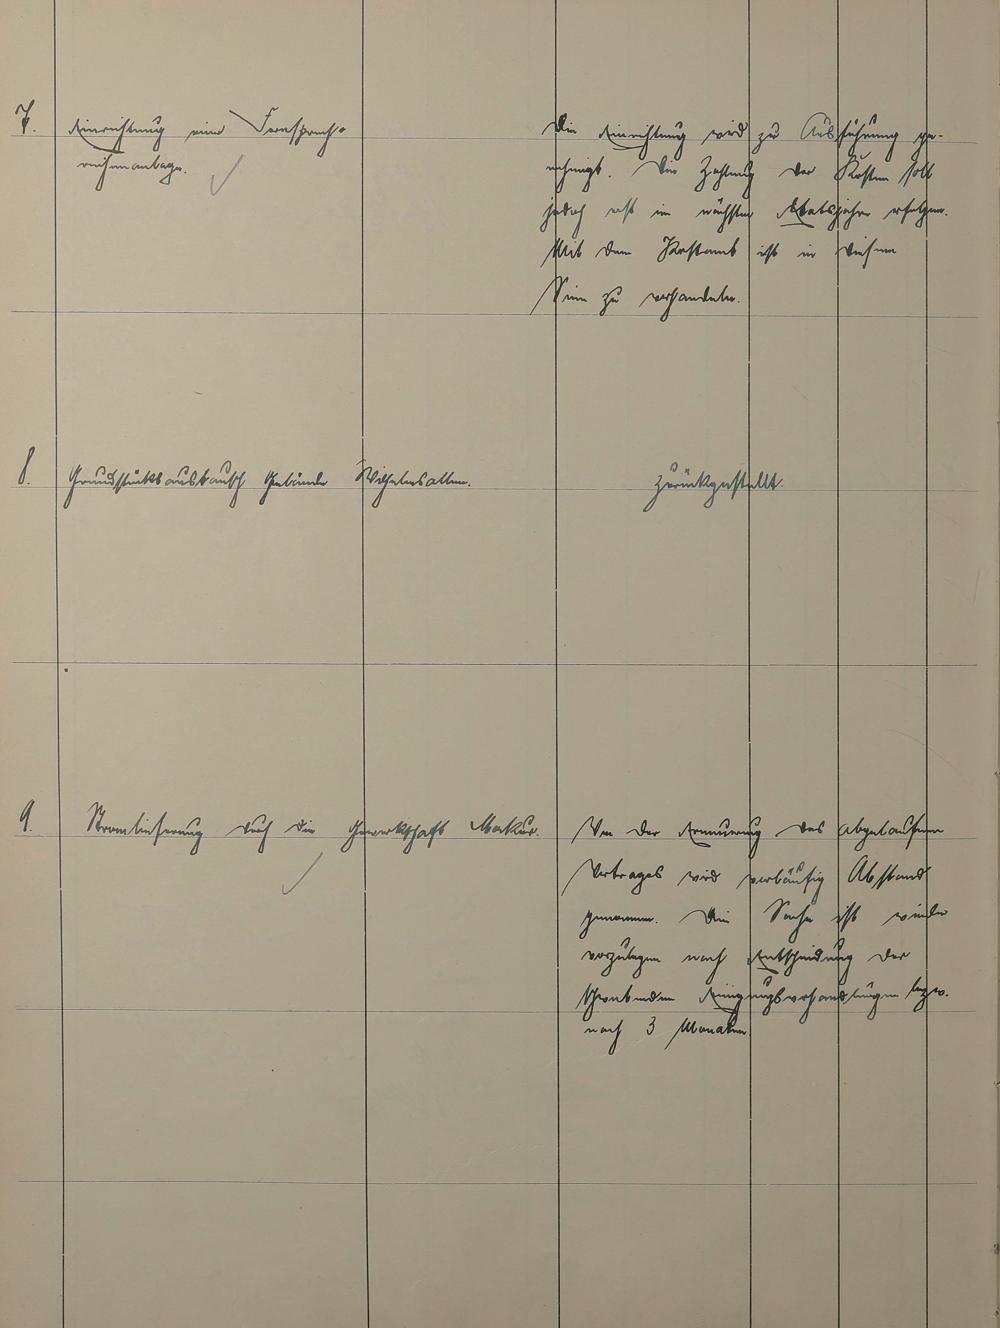 7.
Einrichtung einer Fernsprech-
reihenanlage.
Die Einrichtung wird zu Ausführung ge-
nehmigt. Die Zahlung der Kosten soll
jedoch erst im nächsten Etatsjahre erfolgen.
Mit dem Postamt ist in diesem
Sinn zu verhandeln.
8.
Grundstücksaustausch Gebrüder Wilhelmsallee.
zurückgestellt.
9.
Stromlieferung durch die Gewerkschaft
Von der Erneuerung des abgelaufenen
Vertrages wird vorläufig Abstand
genommen. Die Sache ist wieder
vorzulegen nach Entscheidung der
schwebenden Einigungsverhandlungen bzw.
nach 3 Monaten.